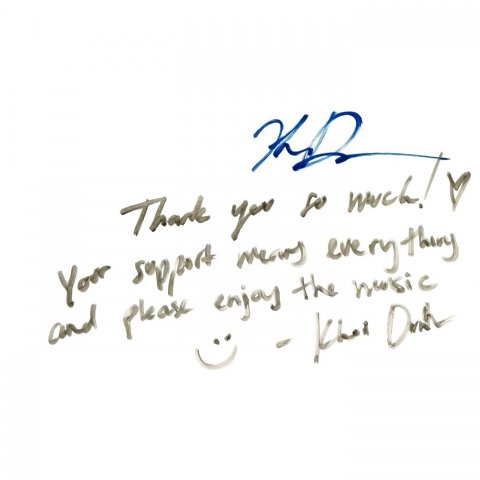 Thank you so much! ♡
Your support means everything
and please enjoy the music
- Khoi